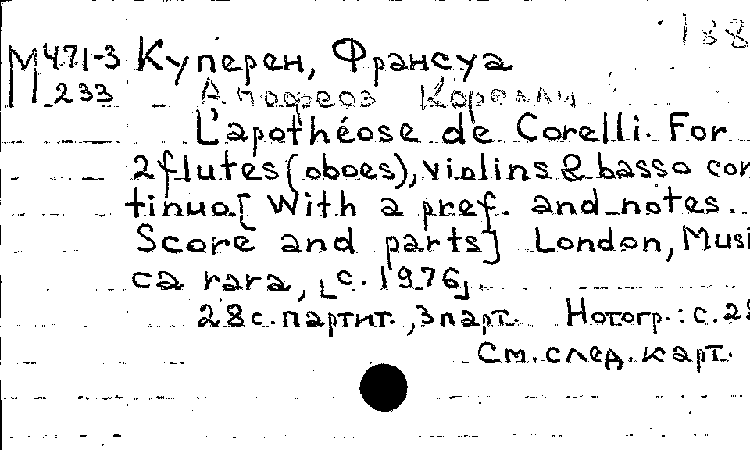 188
М471-3 Куперен, Франсуа
233 Апофеоз Корелли
L'apothéose de Corelli. For
2 flutes (oboes), violins & basso con
tinuo[ With a pref. and notes.
Score and parts] London, Musi
ca rara, [c. 1976].
28 с. партит., 3 парт. Нотогр.: с. 28
См. след. карт.